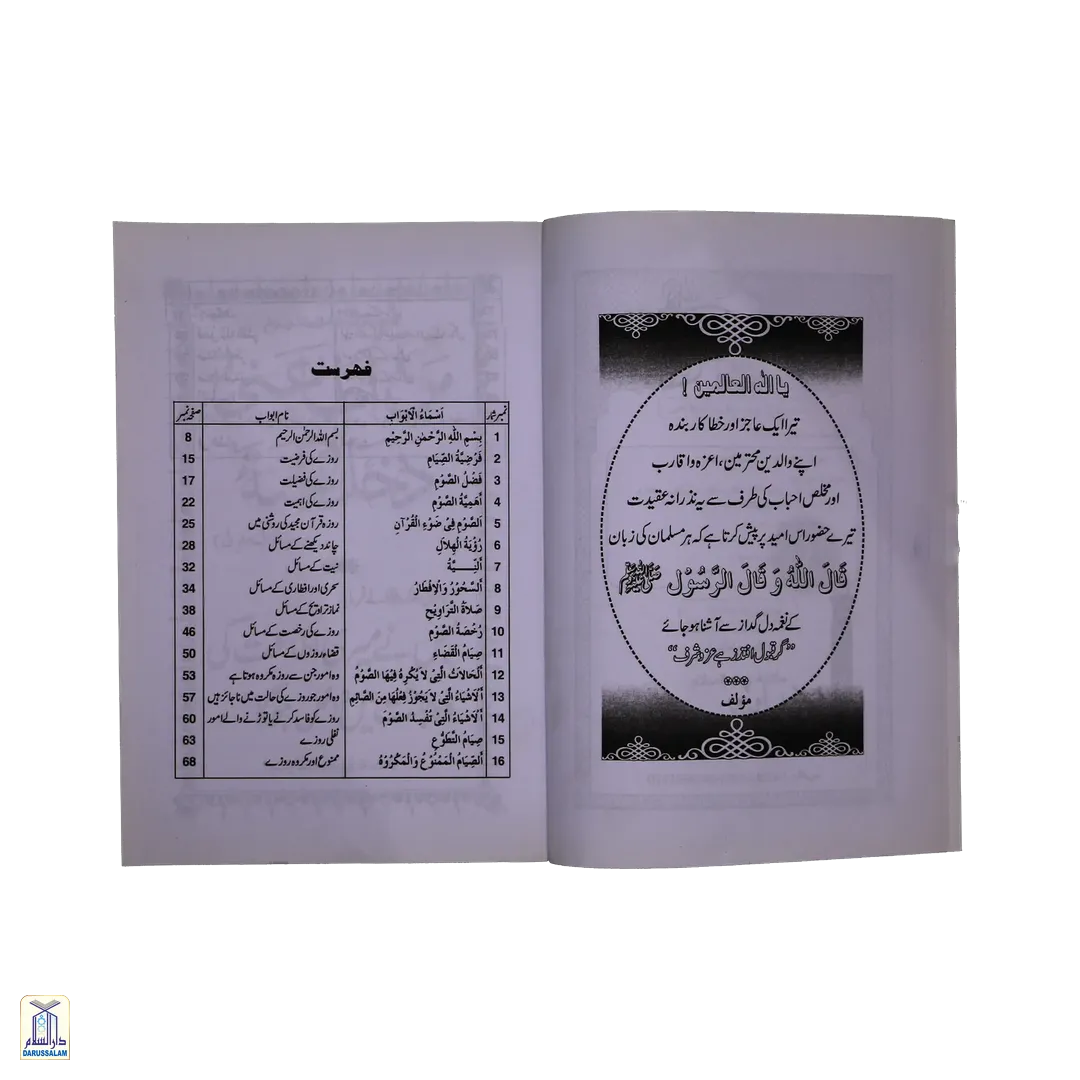 یا الٰہ العالمین !
تیرا ایک عاجز اور خطا کار بندہ
اپنے والدین محترمین، اعزہ و اقارب
اور مخلص احباب کی طرف سے یہ نذرانہ عقیدت
تیرے حضور اس امید پر پیش کرتا ہے کہ ہر مسلمان کی زبان
قَالَ اللّٰهُ وَ قَالَ الرَّسُوْل ﷺ
کے نغمہ دل گداز سے آشنا ہو جائے
”گر قبول افتد زہے عز و شرف“
مؤلف
فہرست
نمبر شمار اَسْمَاءُ الْاَبْوَاب نام ابواب صفحہ نمبر
1 بِسْمِ اللّٰهِ الرَّحْمٰنِ الرَّحِيْمِ بسم اللہ الرحمٰن الرحیم 8
2 فَرْضِيَّةُ الصِّيَامِ روزے کی فرضیت 15
3 فَضْلُ الصَّوْمِ روزے کی فضیلت 17
4 اَهَمِيَّةُ الصَّوْمِ روزے کی اہمیت 22
5 اَلصَّوْمِ فِيْ ضَوْءِ الْقُرْآنِ روزہ قرآن مجید کی روشنی میں 25
6 رُؤْيَةُ الْهِلَالِ چاند دیکھنے کے مسائل 28
7 اَلنِّيَّةُ نیت کے مسائل 32
8 اَلسَّحُوْرُ وَ الْاِفْطَارُ سحری اور افطاری کے مسائل 34
9 صَلَاةُ التَّرَاوِيْحِ نماز تراویح کے مسائل 38
10 رُخْصَةُ الصَّوْمِ روزے کی رخصت کے مسائل 46
11 صِيَامُ الْقَضَاءِ قضاء روزوں کے مسائل 50
12 اَلْحَالَاتُ الَّتِيْ لَا يُكْرَهُ فِيْهَا الصَّوْمُ وہ امور جن سے روزہ مکروہ ہوتا ہے 53
13 اَلْاَشْيَاءُ الَّتِيْ لَا يَجُوْزُ فِعْلُهَا مِنَ الصَّائِمِ وہ امور جو روزے کی حالت میں ناجائز ہیں 57
14 اَلْاَشْيَاءُ الَّتِيْ تُفْسِدُ الصَّوْمَ روزے کو فاسد کرنے یا توڑنے والے امور 60
15 صِيَامُ التَّطَوُّعِ نفلی روزے 63
16 اَلصِّيَامُ الْمَمْنُوْعُ وَالْمَكْرُوْهُ ممنوع اور مکروہ روزے 68
دار السلام
DARUSSALAM